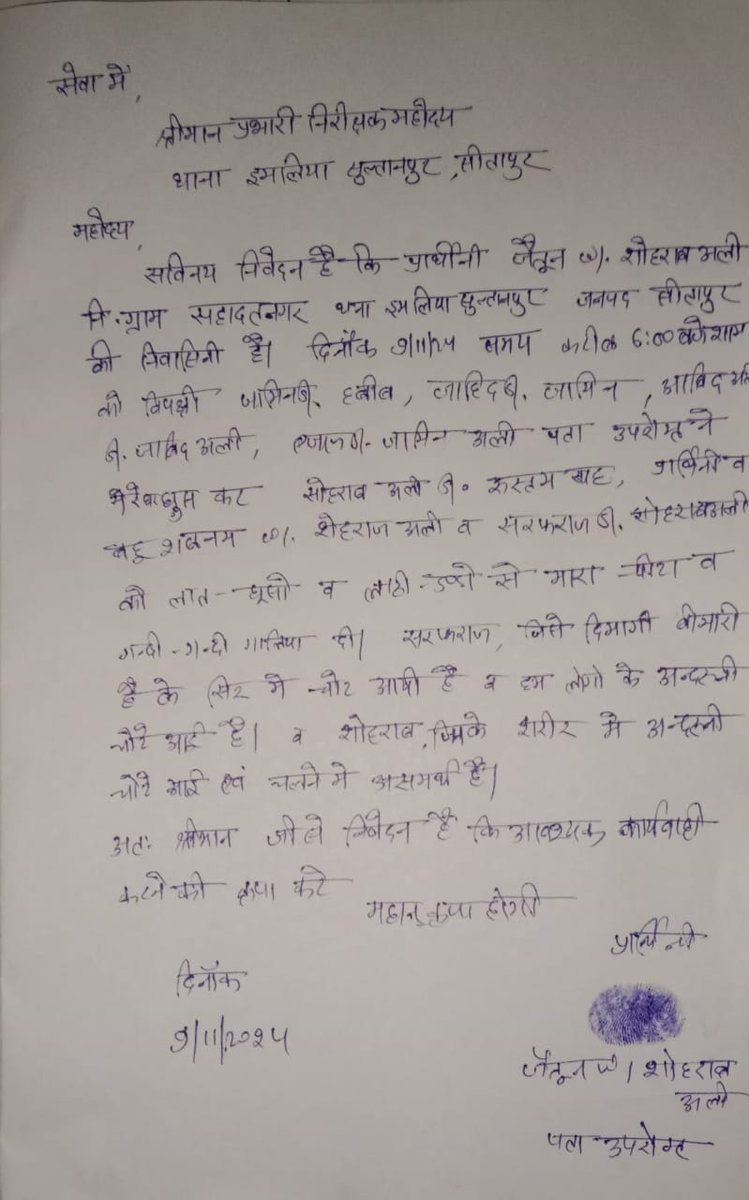 सेवा में,
श्रीमान प्रभारी निरीक्षक महोदय
थाना इमलिया सुल्तानपुर, सीतापुर
महोदय,
सविनय निवेदन है कि प्रार्थीनी जैतून w/. शोहराब अली
नि. ग्राम सहादतनगर थाना इमलिया सुल्तानपुर जनपद सीतापुर
की निवासिनी है। दिनाँक 9/11/24 समय करीब 6:00 बजे शाम
को विपक्षी जामिन s/. हबीब, जाहिद s/. जामिन, आबिद अली
s/. जाबिद अली, s/. जामिन अली पता उपरोक्त ने
कर सोहराब अली s/. रूस्तम शाह, प्रार्थिनी व
बहू शबनम w/. शोहराज अली व सरफराज s/. शोहराब अली
को लात-घूसो व लाठी-डण्डो से मारा-पीटा व
गन्दी-गन्दी गालिया दी। सरफराज, जिसे दिमागी बीमारी
है के सिर मे चोट आयी है व हम लोगो के अन्दरूनी
चोटे आई है। व शोहराब, जिसके शरीर मे अन्दरूनी
चोटे आई एवं चलने मे असमर्थ है।
अतः श्रीमान जी से निवेदन है कि आवश्यक कार्यवाही
करने की कृपा करे
महान कृपा होगी
प्रार्थिनी
दिनाँक
9/11/2024
जैतून w/ शोहराब
अली
पता उपरोक्त